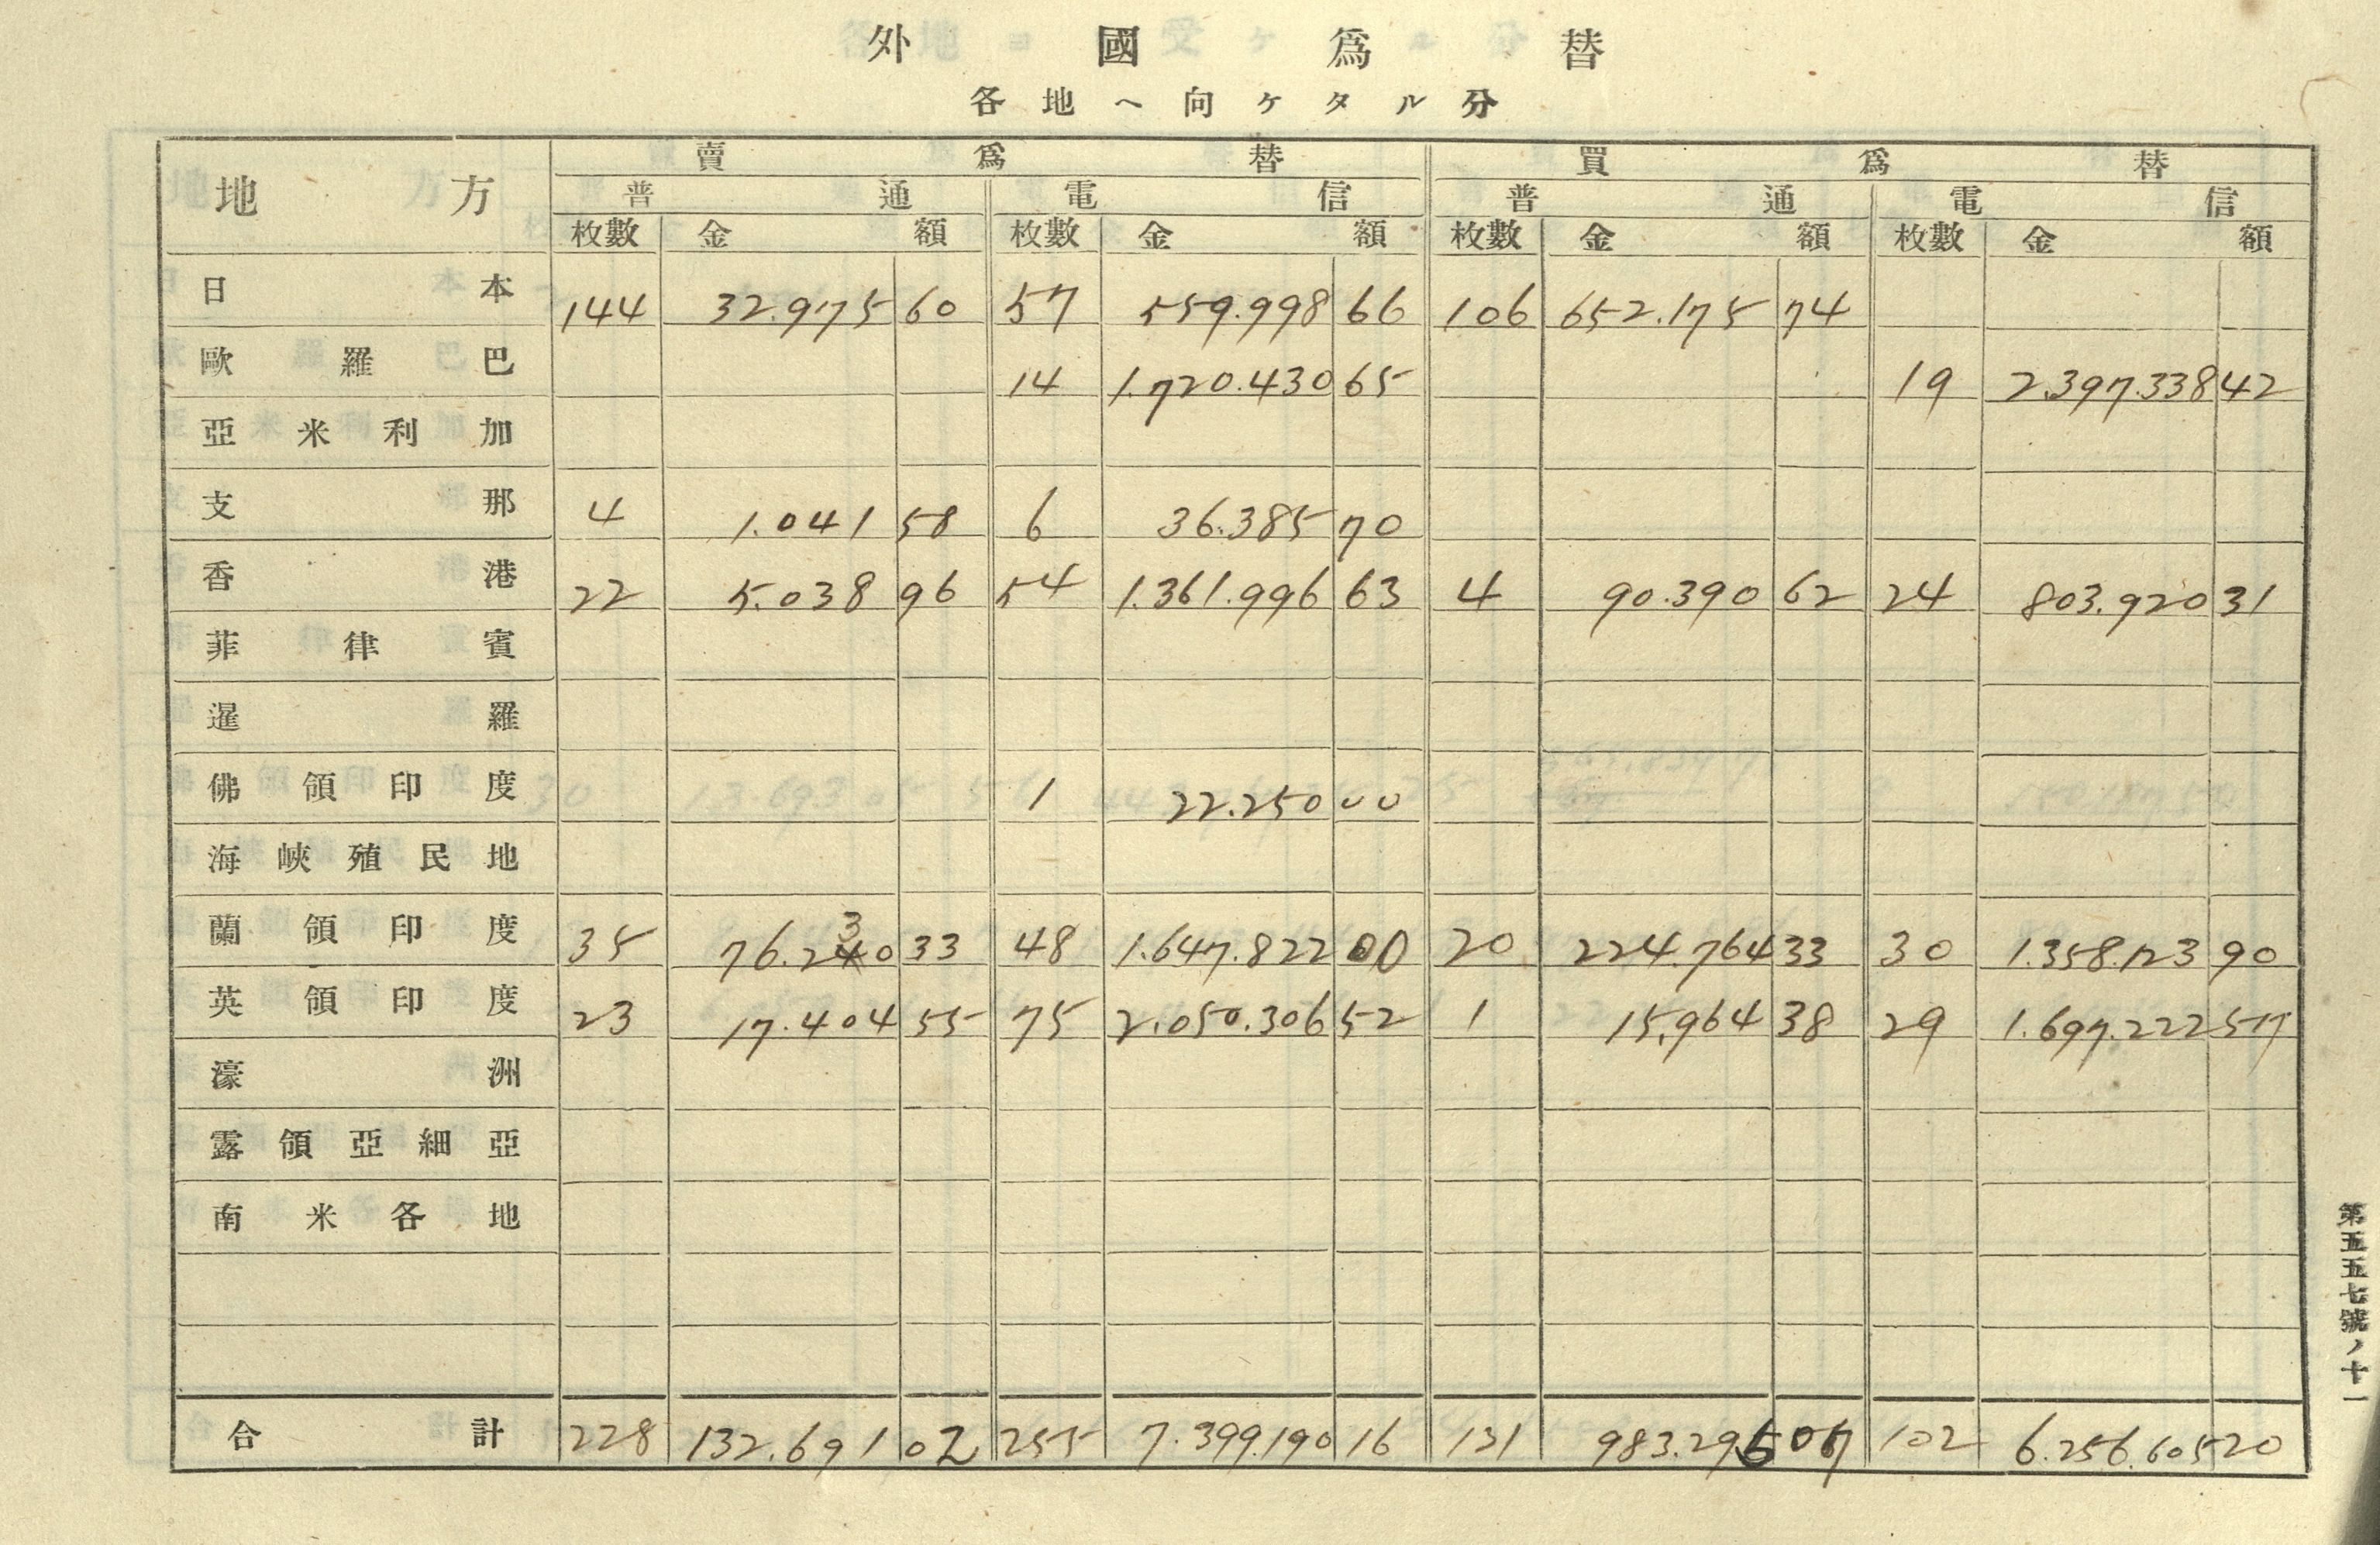 外國爲替
各地ヘ向ケタル分
地方 賣爲替 買爲替
普通 電信 普通 電信
枚數 金額 枚數 金額 枚數 金額 枚數 金額
日本 144 32.975 60 57 559.998 66 106 652.175 74
歐羅巴 14 1.720.430 65 19 2.397.338 42
亞米利加
支那 4 1.041 58 6 36.385 70
香港 22 5.038 96 54 1.361.996 63 4 90.390 62 24 803.920 31
菲律賓
暹羅
佛領印度 1 22.250 00
海峽殖民地
蘭領印度 35 76.230 33 48 1.647.822 00 20 224.764 33 30 1.358.123 90
英領印度 23 17.404 55 75 2.050.306 52 1 15.964 38 29 1.697.222 57
濠洲
露領亞細亞
南米各地
合計 228 132.691 02 255 7.399.190 16 131 983.295 07 102 6.256.605 20
第五五七號ノ十一